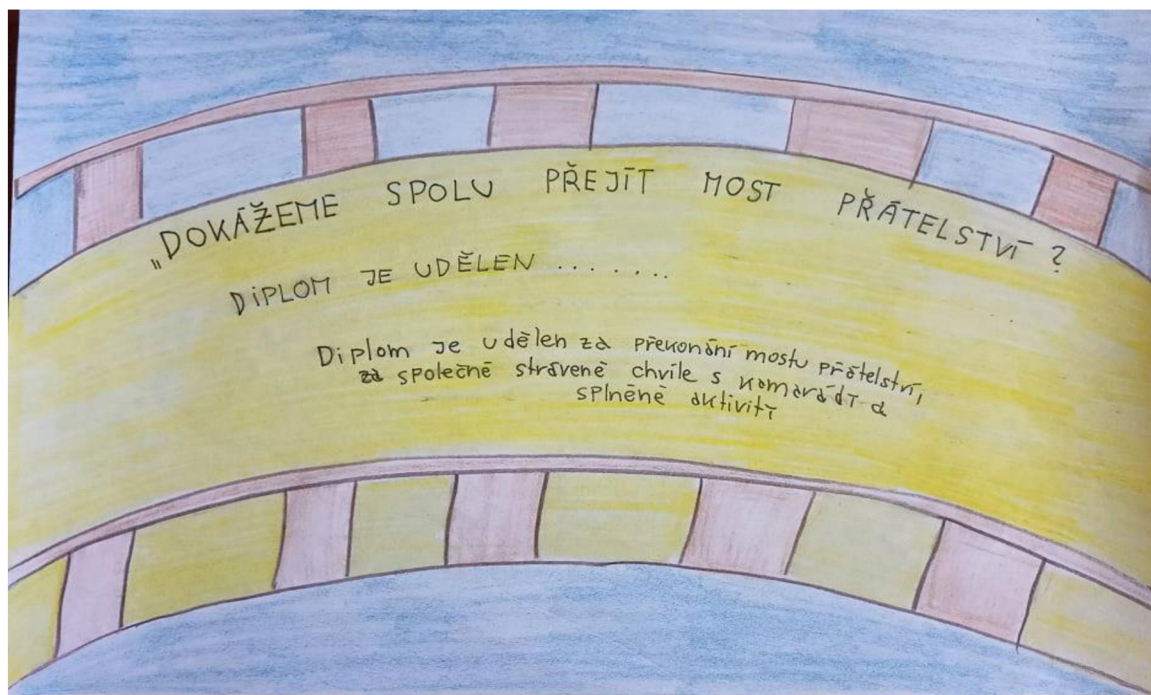 „DOKÁŽEME SPOLU PŘEJÍT MOST PŘÁTELSTVÍ ?
DIPLOM JE UDĚLEN .......
Diplom je udělen za překonání mostu přátelství,
za společně strávené chvíle s kamarády a
splněné aktivity